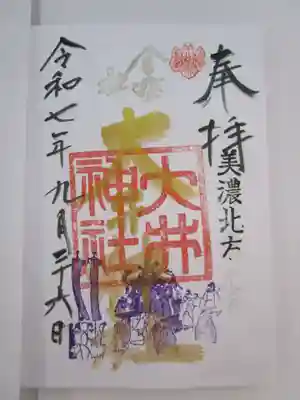 奉拝
美濃北方
大井
神社
金幣
社
令和七年九月二十六日